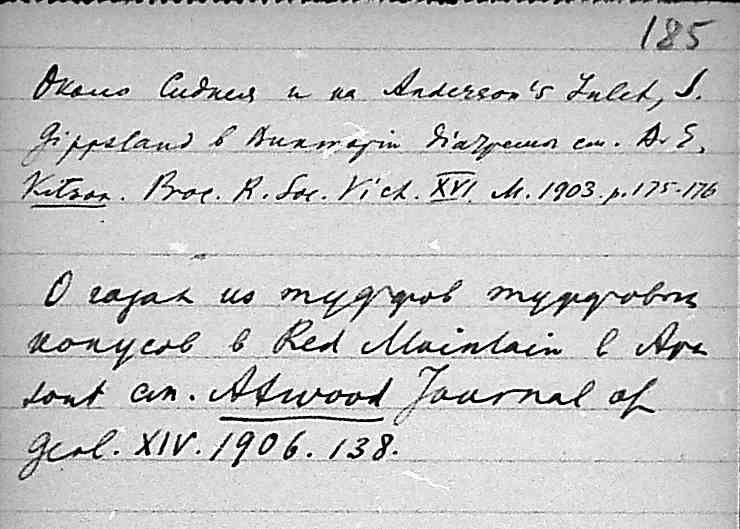 185
Около Сиднея и на Anderson's Inlet, S.
Gippsland в см. A. E.
Kitson. Proc. R. Soc. Vict. XVI. M. 1903. p. 175-176
О газах из туффов туффовых
конусов в Red Mountain в Ari
zona см. Atwood Journal of
geol. XIV. 1906. 138.